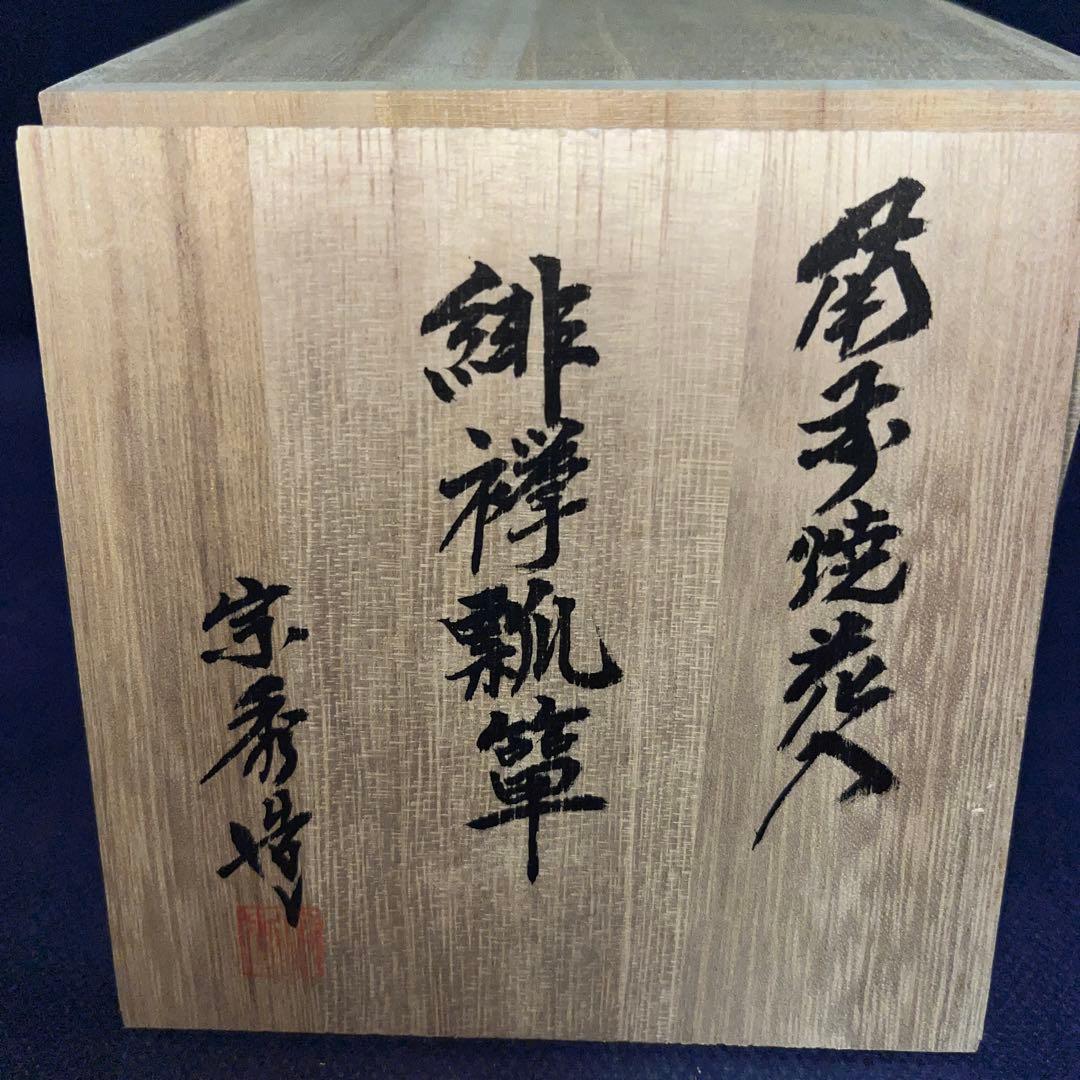 備前焼花入
緋襷瓢箪
宗秀